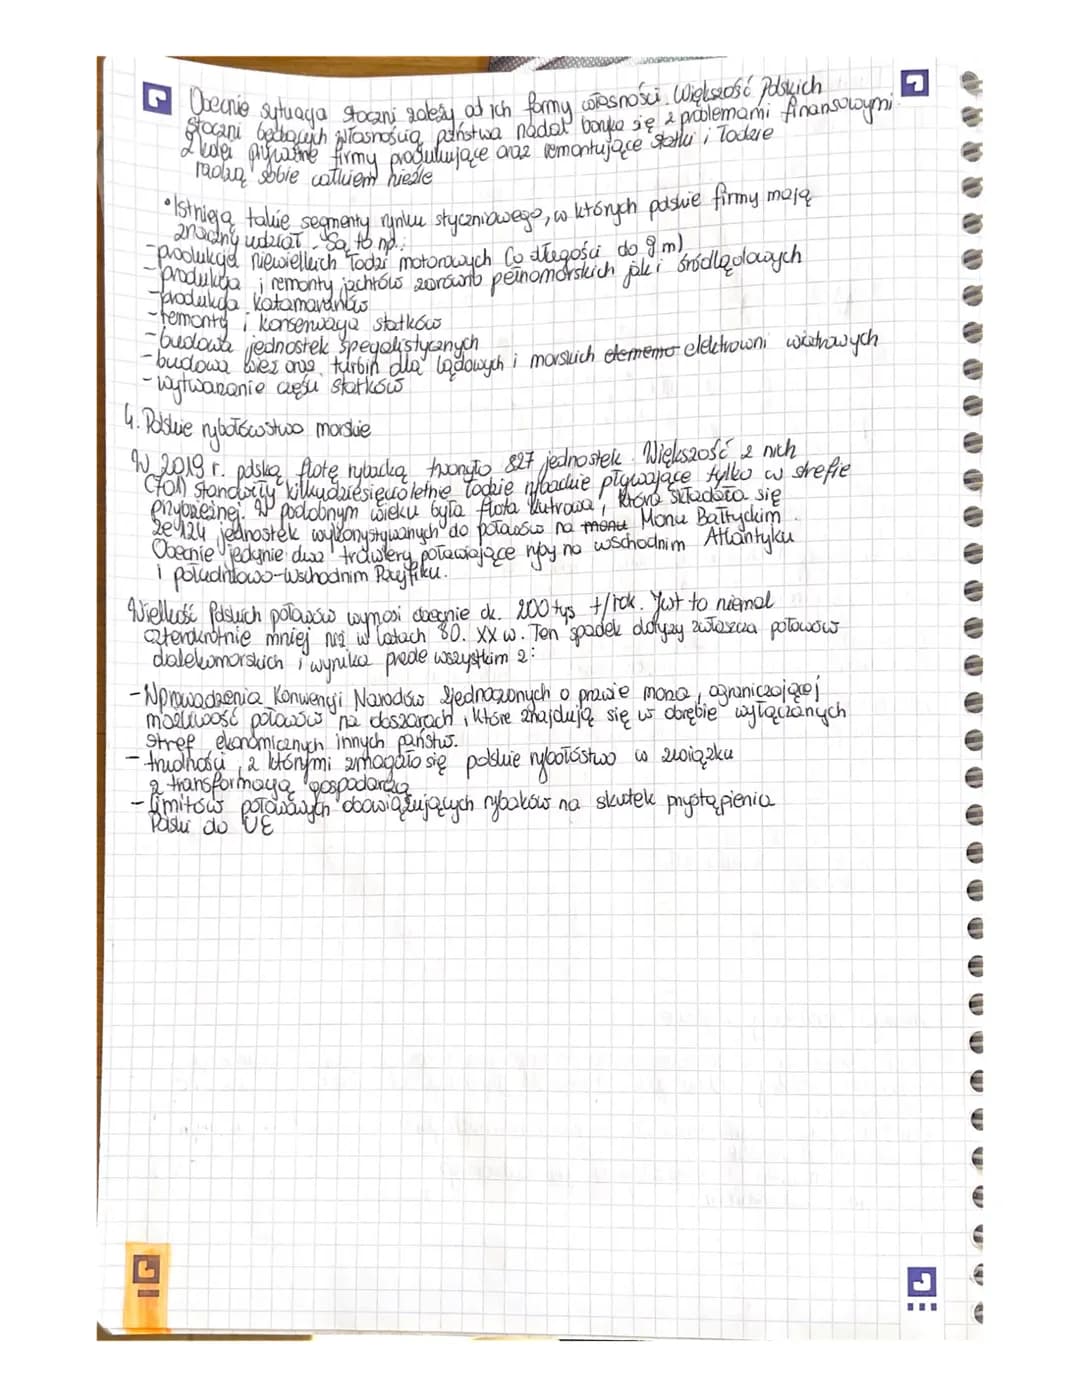 Obecnie sytuacja stoczni zależy od ich formy własności. Większość Polskich
stoczni będących własnością państwa nadal boryka się z problemami finansowymi.
Z kolei prywatne firmy produkujące oraz remontujące statki i łodzie
radzą sobie całkiem nieźle
• Istnieją takie segmenty rynku styczniowego, w których polskie firmy mają
znaczny udział. Są to np.:
- produkcja niewielkich łodzi motorowych (o długości do 9 m)
- produkcja i remonty jachtów zarówno pełnomorskich jak i śródlądowych
- produkcja katamaranów
- remonty i konserwacja statków
- budowa jednostek specjalistycznych
- budowa wież oraz turbin dla lądowych i morskich elektrowni wiatrowych
- wytwarzanie części statków
4. Polskie rybołówstwo morskie
W 2019 r. polską flotę rybacką tworzyło 827 jednostek. Większość z nich
(701) stanowiły kilkudziesięcioletnie łodzie rybackie pływające tylko w strefie
przybrzeżnej. W podobnym wieku była flota kutrowa, która składała się
ze 124 jednostek wykorzystywanych do połowów na morzu Morzu Bałtyckim.
Obecnie jedynie dwa trawlery poławiające ryby na wschodnim Atlantyku
i południowo-wschodnim Pacyfiku.
Wielkość Polskich połowów wynosi obecnie ok. 200 tys t/rok. Jest to niemal
czterokrotnie mniej niż w latach 80. XX w. Ten spadek dotyczy zwłaszcza połowów
dalekomorskich i wynika przede wszystkim z:
- Wprowadzenia Konwencji Narodów Zjednoczonych o prawie morza, ograniczającej
możliwość połowów na obszarach, które znajdują się w obrębie wyłączanych
stref ekonomicznych innych państw.
- trudności, z którymi zmagało się polskie rybołóstwo w związku
z transformacją gospodarczą
- limitów połowowych obowiązujących rybaków na skutek przystąpienia
Polski do UE